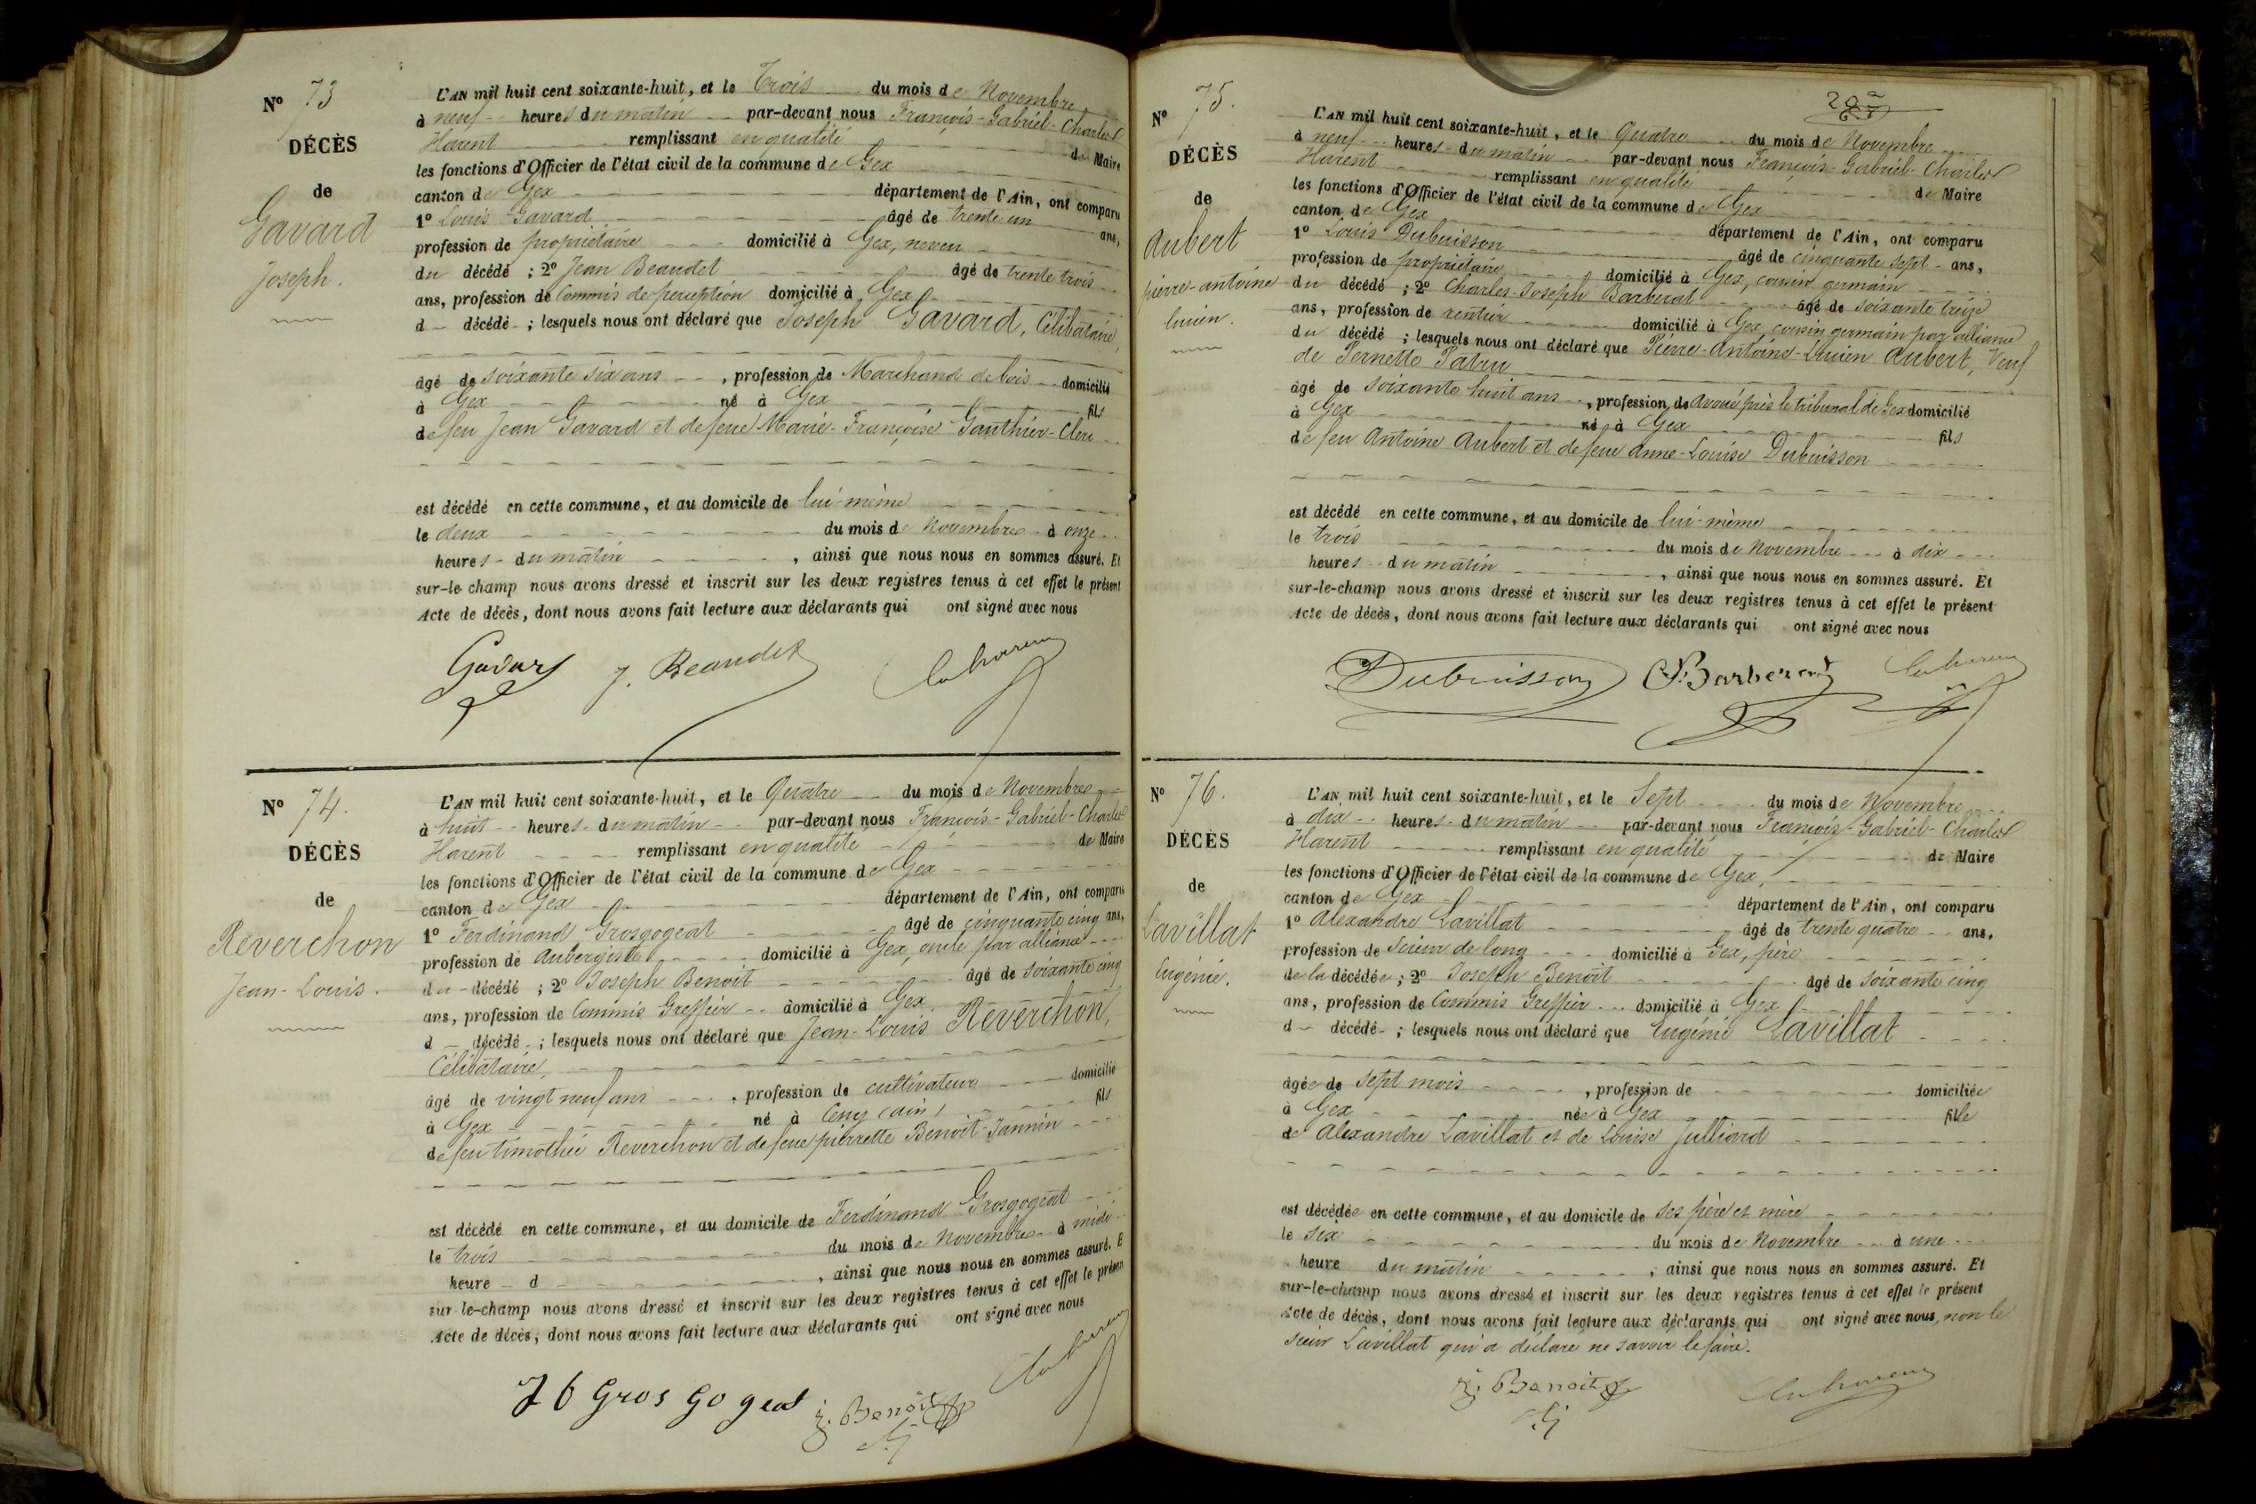 N° 73
DÉCÈS
de
Gavard
Joseph.
L'AN mil huit cent soixante-huit, et le Trois du mois de Novembre
à neuf heures du matin par-devant nous François-Gabriel-Charles
Harent remplissant en qualité de Maire
les fonctions d'Officier de l'état civil de la commune de Gex
canton de Gex département de l'Ain, ont comparu
1° Louis Gavard âgé de trente un ans,
profession de propriétaire domicilié à Gex, neveu
du décédé ; 2° Jean Beaudet âgé de trente trois
ans, profession de Commis de perception domicilié à Gex
d décédé ; lesquels nous ont déclaré que Joseph Gavard, Célibataire,
âgé de soixante six ans, profession de Marchand de bois domicilié
à Gex né à Gex fils
de feu Jean Gavard et de feue Marie-Françoise Gauthier-Clerc
est décédé en cette commune, et au domicile de lui-même
le deux du mois de Novembre à onze
heures du matin, ainsi que nous nous en sommes assuré. Et
sur-le-champ nous avons dressé et inscrit sur les deux registres tenus à cet effet le présent
Acte de décès, dont nous avons fait lecture aux déclarants qui ont signé avec nous
Gavard J. Beaudet
N° 74.
DÉCÈS
de
Reverchon
Jean-Louis.
L'AN mil huit cent soixante-huit, et le Quatre du mois de Novembre
à huit heures du matin par-devant nous François-Gabriel-Charles
Harent remplissant en qualité de Maire
les fonctions d'Officier de l'état civil de la commune de Gex
canton de Gex département de l'Ain, ont comparu
1° Ferdinand Grosgogeat âgé de cinquante cinq ans,
profession de aubergiste domicilié à Gex, oncle par alliance
du décédé ; 2° Joseph Benoit âgé de soixante cinq
ans, profession de Commis Greffier domicilié à Gex
d décédé ; lesquels nous ont déclaré que Jean-Louis Reverchon,
Célibataire,
âgé de vingt neuf ans, profession de cultivateur domicilié
à Gex né à Cruy (ain) fils
de feu timothée Reverchon et de feue pierrette Benoit-Jannin
est décédé en cette commune, et au domicile de Ferdinand Grosgogeat
le trois du mois de Novembre à midi
heure d , ainsi que nous nous en sommes assuré. E
sur-le-champ nous avons dressé et inscrit sur les deux registres tenus à cet effet le présen
Acte de décès, dont nous avons fait lecture aux déclarants qui ont signé avec nous
Gros Go geat j. Benoit
N° 75.
DÉCÈS
de
Aubert
pierre-antoine
lucien.
L'AN mil huit cent soixante-huit, et le Quatre du mois de Novembre
à neuf heures du matin par-devant nous François-Gabriel-Charles
Harent remplissant en qualité de Maire
les fonctions d'Officier de l'état civil de la commune de Gex
canton de Gex département de l'Ain, ont comparu
1° Louis Dubuisson âgé de cinquante sept ans,
profession de propriétaire domicilié à Gex, cousin germain
du décédé ; 2° Charles-Joseph Barberat âgé de soixante treize
ans, profession de rentier domicilié à Gex, cousin germain par alliance
du décédé ; lesquels nous ont déclaré que Pierre-Antoine-Lucien Aubert, Veuf
de Pernette Patru
âgé de soixante huit ans, profession de avoué près le tribunal de Gex domicilié
à Gex né à Gex fils
de feu Antoine Aubert et de feue Anne-Louise Dubuisson
est décédé en cette commune, et au domicile de lui-même
le trois du mois de Novembre à dix
heures du matin, ainsi que nous nous en sommes assuré. Et
sur-le-champ nous avons dressé et inscrit sur les deux registres tenus à cet effet le présent
Acte de décès, dont nous avons fait lecture aux déclarants qui ont signé avec nous
Dubuisson Barberat
N° 76.
DÉCÈS
de
Lavillat
Eugénie.
L'AN mil huit cent soixante-huit, et le Sept du mois de Novembre
à dix heures du matin par-devant nous François-Gabriel-Charles
Harent remplissant en qualité de Maire
les fonctions d'Officier de l'état civil de la commune de Gex,
canton de Gex département de l'Ain, ont comparu
1° Alexandre Lavillat âgé de trente quatre ans,
profession de Scieur de long domicilié à Gex, père
de la décédée ; 2° Joseph Benoit âgé de soixante cinq
ans, profession de Commis Greffier domicilié à Gex
d décédé ; lesquels nous ont déclaré que Eugénie Lavillat
âgée de sept mois, profession de domiciliée
à Gex née à Gex fille
de Alexandre Lavillat et de Louise Julliard
est décédée en cette commune, et au domicile de ses père et mère
le six du mois de Novembre à une
heure du matin, ainsi que nous nous en sommes assuré. Et
sur-le-champ nous avons dressé et inscrit sur les deux registres tenus à cet effet le présent
Acte de décès, dont nous avons fait lecture aux déclarants qui ont signé avec nous, non le
sieur Lavillat qui a déclaré ne savoir le faire.
j. Benoit